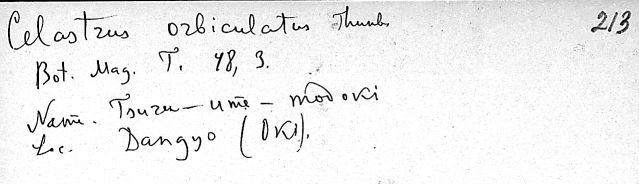 Celastrus orbiculatus Thunb. 213
Bot. Mag. T. 48, 3.
Name. Tsuru-ume-modoki
Loc. Dangyo (Oki).